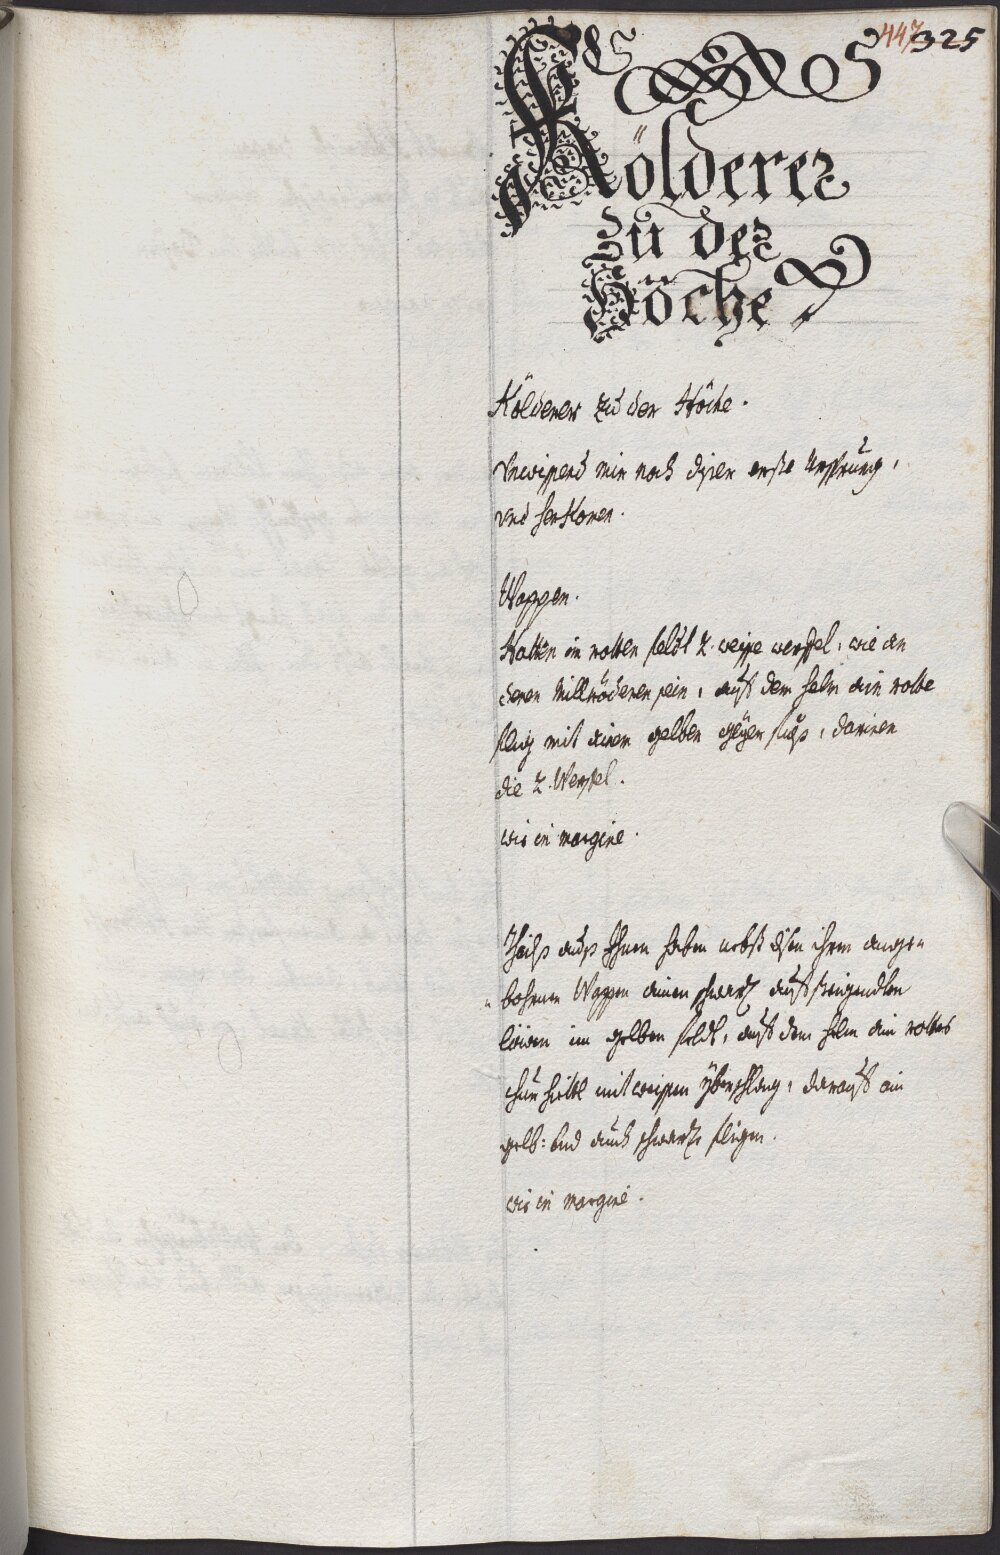 447 325
Kölderer
zu der
Höche
Kölderer zu der Höche.
Unwissend mir noch diser erste Ursprung,
und herkomen.
Wappen.
Hatten in rotten feldt 2. weisse werffel, wie an
deren sein, auf dem helm ain rotte
flug mit ainem gelben fluß, darinen
die 2. Werffel.
wie in margine.
Theils auß Ihnen haben nebst disen ihren ange-
bohrnen Wappen ainen schwarz aufsteigendten
löwen im gelben feldt, auf dem helm ain rottes
hietl mit weissen yberschlag, darauf ain
gelb: und auch schwarze fligen.
wie in margine.